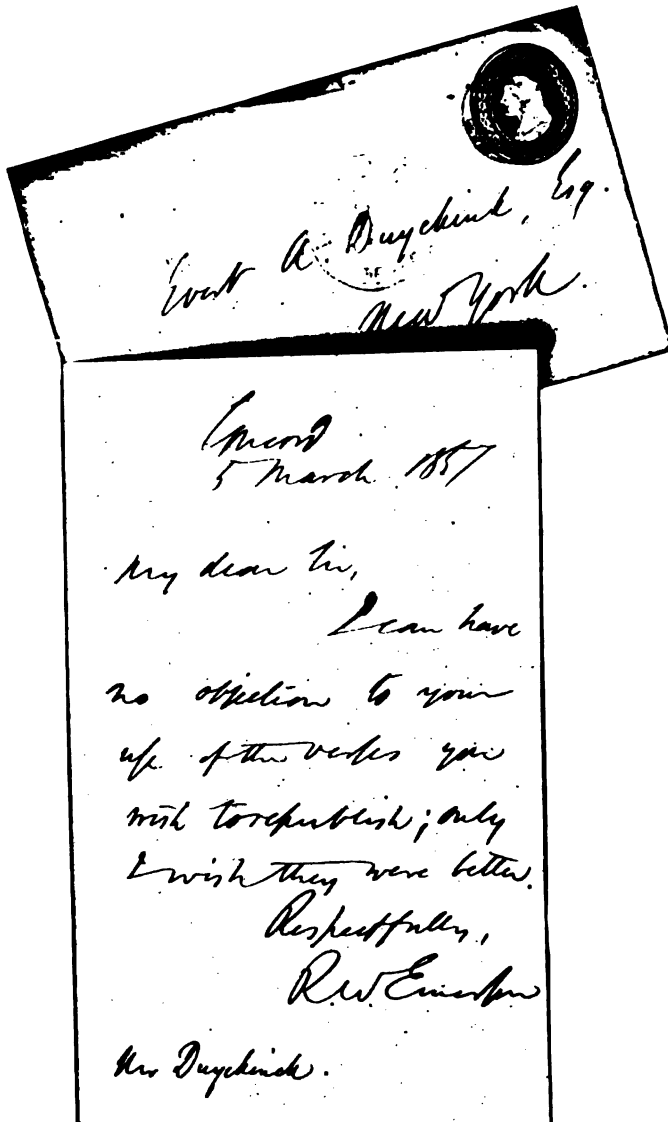 Evert A. Duyckinck, Esq.
New York.
Concord
5 March 1857
My dear Sir,
I can have
no objection to your
use of the verses you
wish to republish; only
I wish they were better.
Respectfully,
R. W. Emerson
Mr Duyckinck.